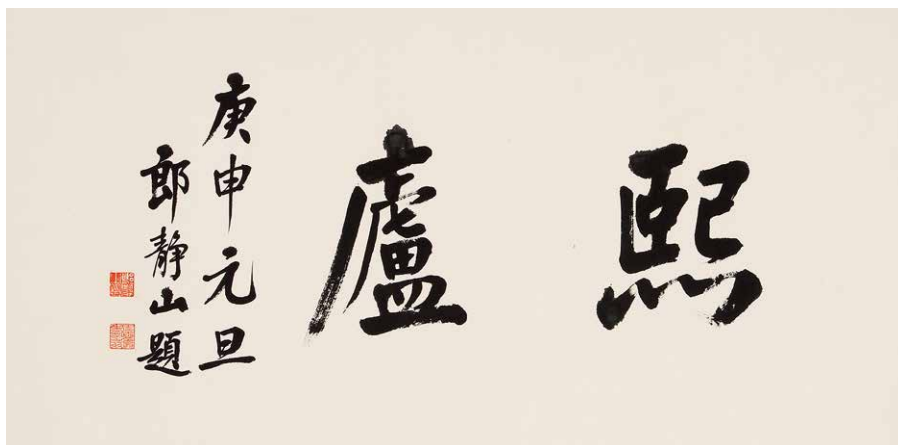 熙廬
庚申元旦
郎靜山題